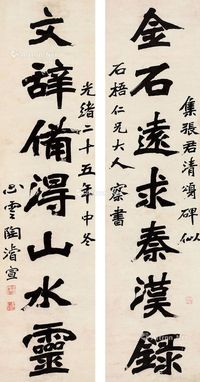 集張君清頌碑似
金石遠求秦漢錄
石梧仁兄大人察書
光緒二十五年中冬
文辭備得山水靈
心雲陶濬宣